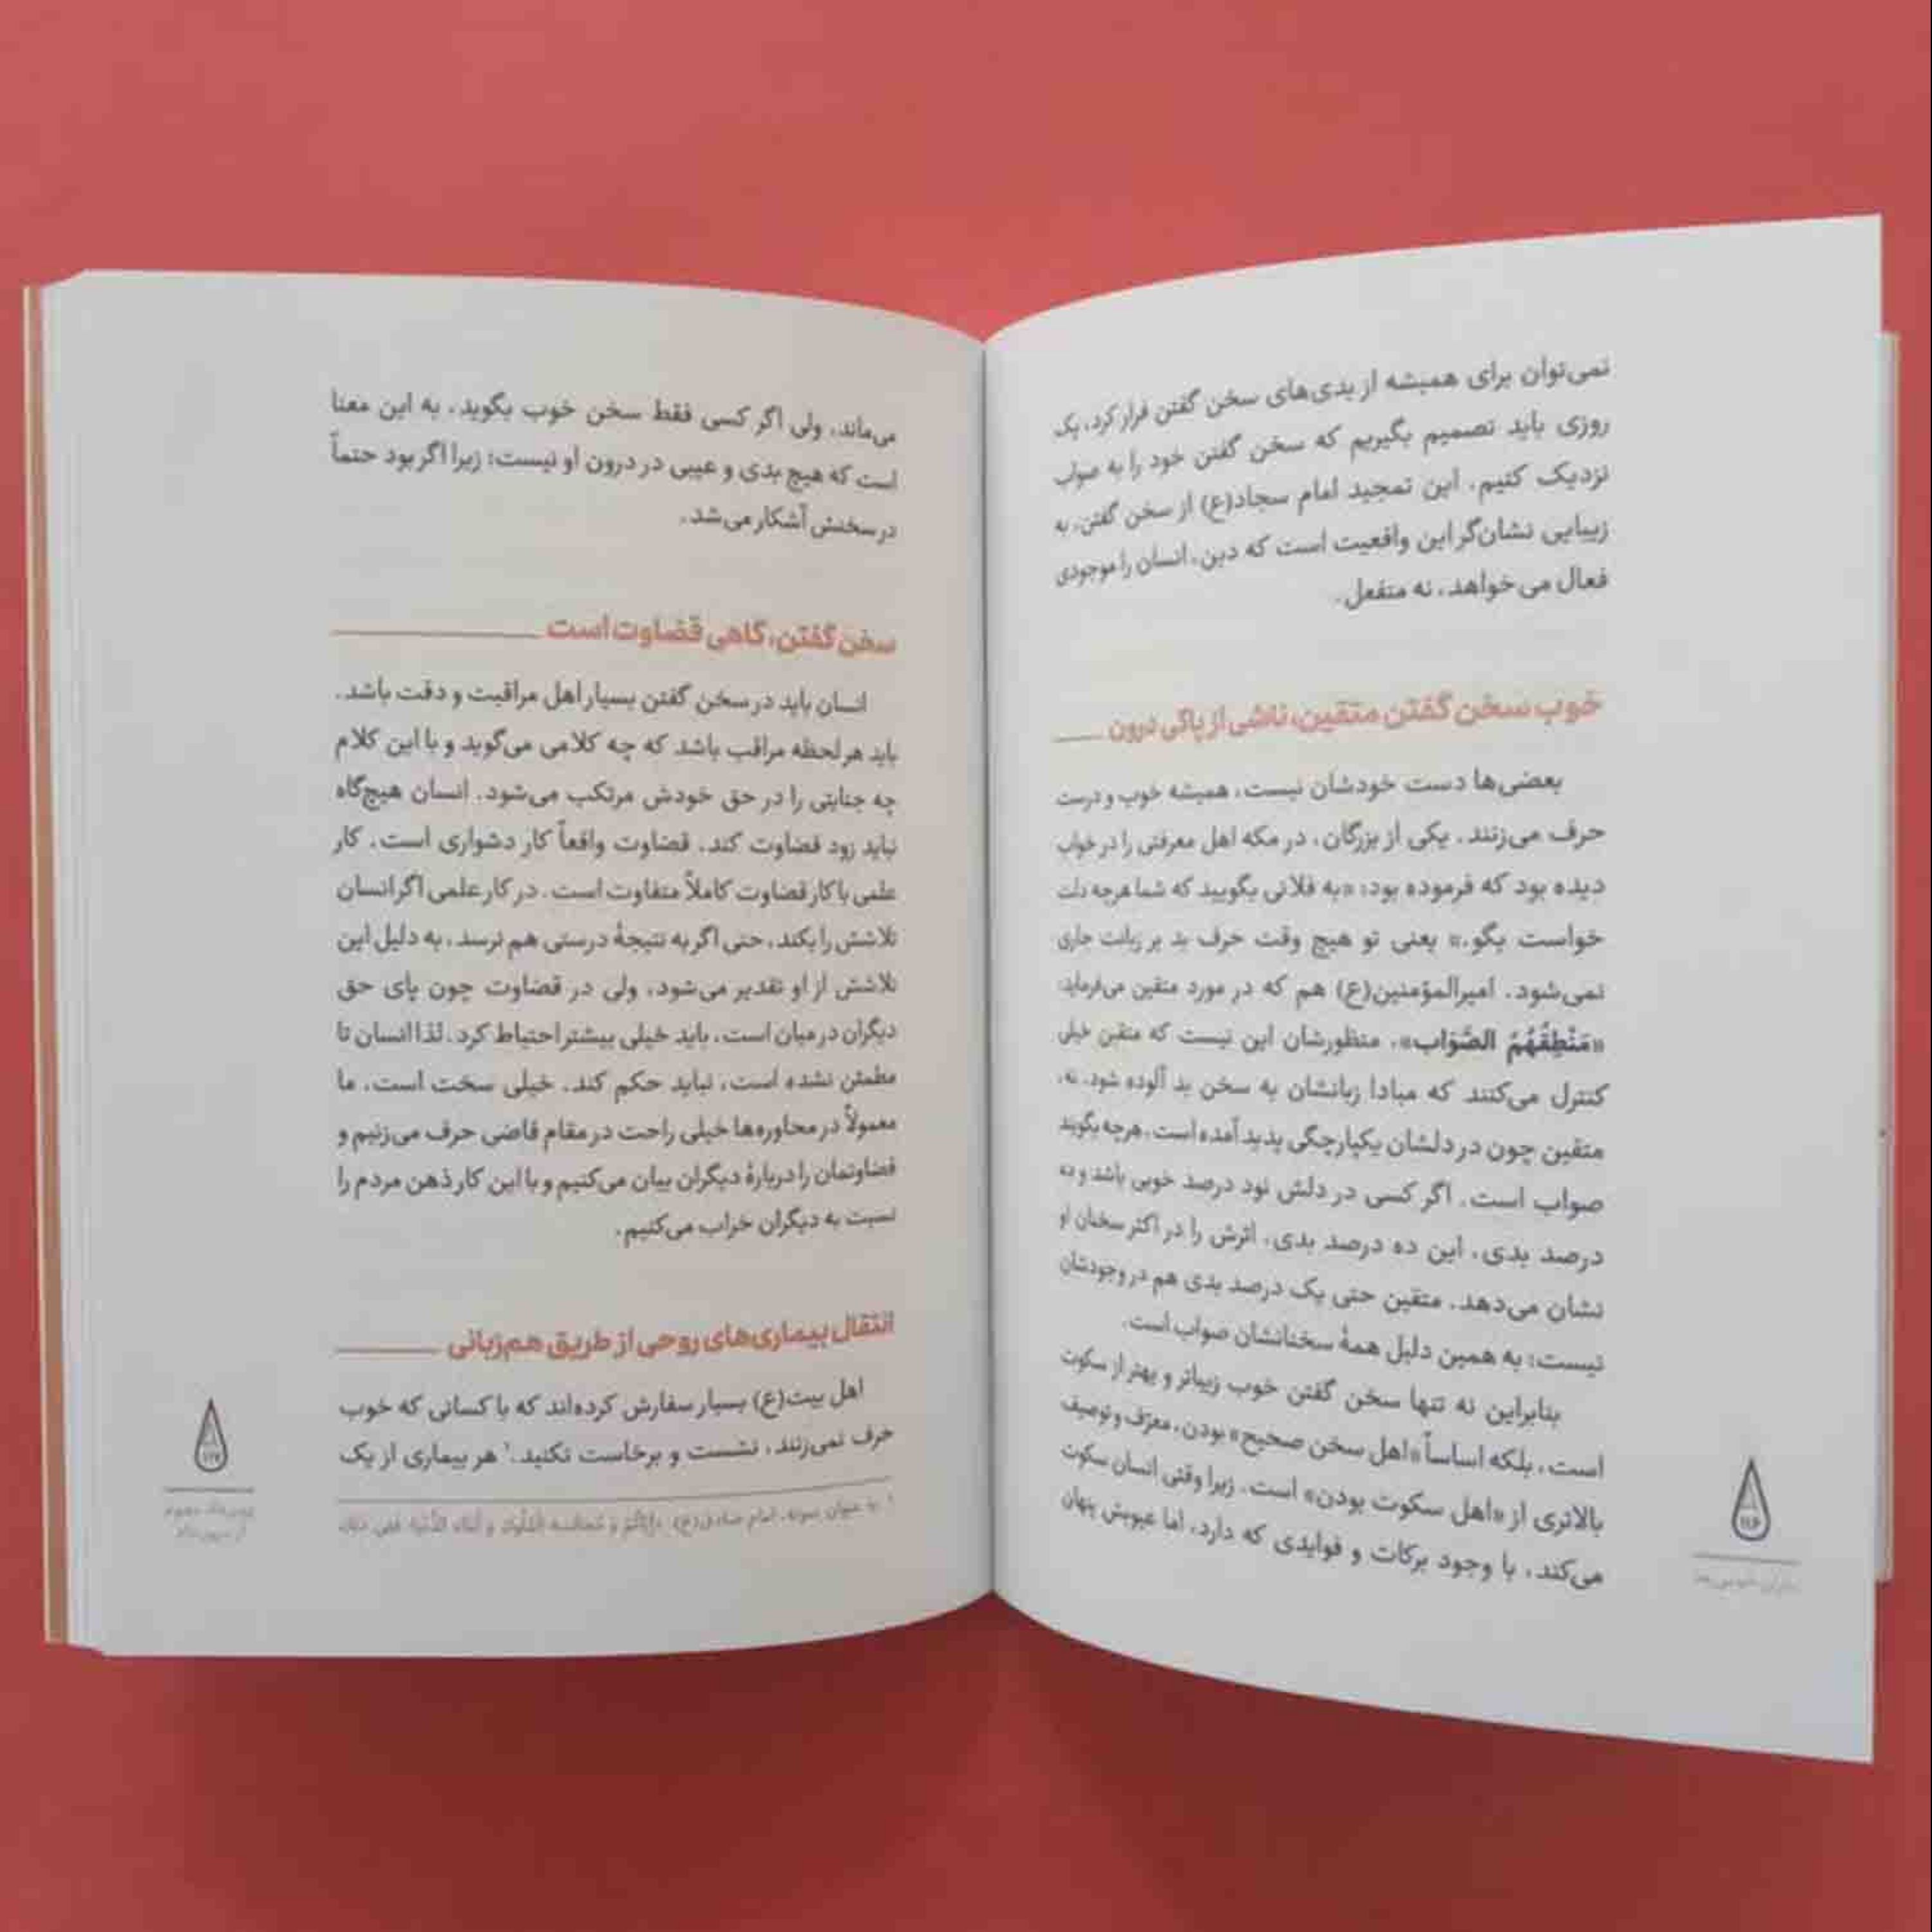 نمی‌توان برای همیشه از بدی‌های سخن گفتن فرار کرد، یک
روزی باید تصمیم بگیریم که سخن گفتن خود را به صواب
نزدیک کنیم. این تمجید امام سجاد(ع) از سخن گفتن، به
زیبایی نشان‌گر این واقعیت است که دین، انسان را موجودی
فعال می‌خواهد، نه منفعل.
خوب سخن گفتن متقین، ناشی از پاکی درون
بعضی‌ها دست خودشان نیست، همیشه خوب و درست
حرف می‌زنند. یکی از بزرگان، در مکه اهل معرفتی را در خواب
دیده بود که فرموده بود: «به فلانی بگویید که شما هرچه دلت
خواست بگو.» یعنی تو هیچ وقت حرف بد بر زبانت جاری
نمی‌شود. امیرالمؤمنین(ع) هم که در مورد متقین می‌فرماید:
«مَنْطِقُهُمُ الصَّوَاب»، منظورشان این نیست که متقین خیلی
کنترل می‌کنند که مبادا زبانشان به سخن بد آلوده شود. نه،
متقین چون در دلشان یکپارچگی پدید آمده است، هرچه بگویند
صواب است. اگر کسی در دلش نود درصد خوبی باشد و ده
درصد بدی، این ده درصد بدی، اثرش را در اکثر سخنان او
نشان می‌دهد. متقین حتی یک درصد بدی هم در وجودشان
نیست؛ به همین دلیل همهٔ سخنانشان صواب است.
بنابراین نه تنها سخن گفتن خوب زیباتر و بهتر از سکوت
است، بلکه اساساً «اهل سخن صحیح» بودن، معرّف و توصیف
بالاتری از «اهل سکوت بودن» است. زیرا وقتی انسان سکوت
می‌کند، با وجود برکات و فوایدی که دارد، اما عیوبش پنهان
۱۱۶
می‌ماند، ولی اگر کسی فقط سخن خوب بگوید، به این معنا
است که هیچ بدی و عیبی در درون او نیست؛ زیرا اگر بود حتماً
در سخنش آشکار می‌شد.
سخن گفتن، گاهی قضاوت است
انسان باید در سخن گفتن بسیار اهل مراقبت و دقت باشد.
باید هر لحظه مراقب باشد که چه کلامی می‌گوید و با این کلام
چه جنایتی را در حق خودش مرتکب می‌شود. انسان هیچ‌گاه
نباید زود قضاوت کند. قضاوت واقعاً کار دشواری است. کار
علمی با کار قضاوت کاملاً متفاوت است. در کار علمی اگر انسان
تلاشش را بکند، حتی اگر به نتیجهٔ درستی هم نرسد، به دلیل این
تلاشش از او تقدیر می‌شود، ولی در قضاوت چون پای حق
دیگران در میان است، باید خیلی بیشتر احتیاط کرد. لذا انسان تا
مطمئن نشده است، نباید حکم کند. خیلی سخت است. ما
معمولاً در محاوره‌ها خیلی راحت در مقام قاضی حرف می‌زنیم و
قضاوتمان را دربارهٔ دیگران بیان می‌کنیم و با این کار ذهن مردم را
نسبت به دیگران خراب می‌کنیم.
انتقال بیماری‌های روحی از طریق هم‌زبانی
اهل بیت(ع) بسیار سفارش کرده‌اند که با کسانی که خوب
حرف نمی‌زنند، نشست و برخاست نکنید.۱ هر بیماری از یک
۱ به عنوان نمونه، امام صادق(ع):
۱۱۷